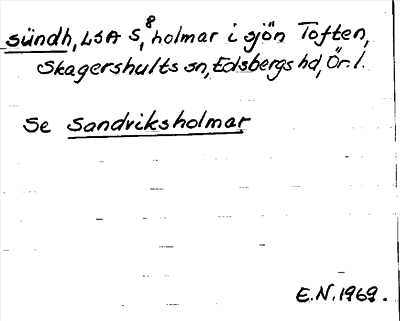 sündh, LSA S, 8 holmar i sjön Toften,
Skagershults sn, Edsbergs hd, Ör. l.
Se Sandviksholmar
E.N. 1969.